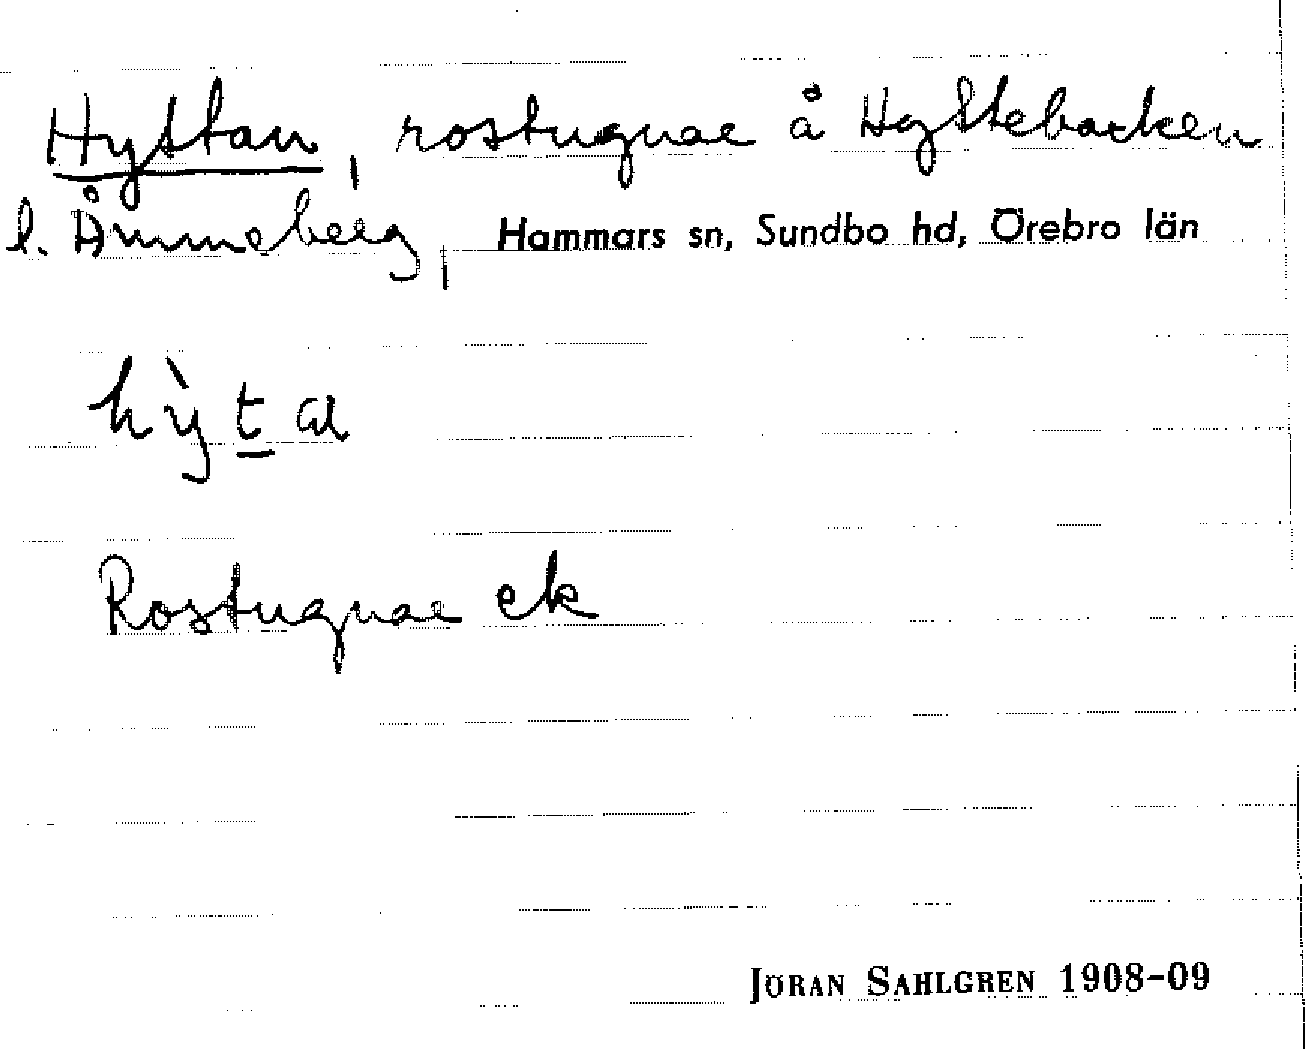 Hyttan, rostugnar å Hyttebacken
l. Åmmeberg, Hammars sn, Sundbo hd, Örebro län
hỳt̲a
Rostugnar ek
JÖRAN SAHLGREN 1908-09